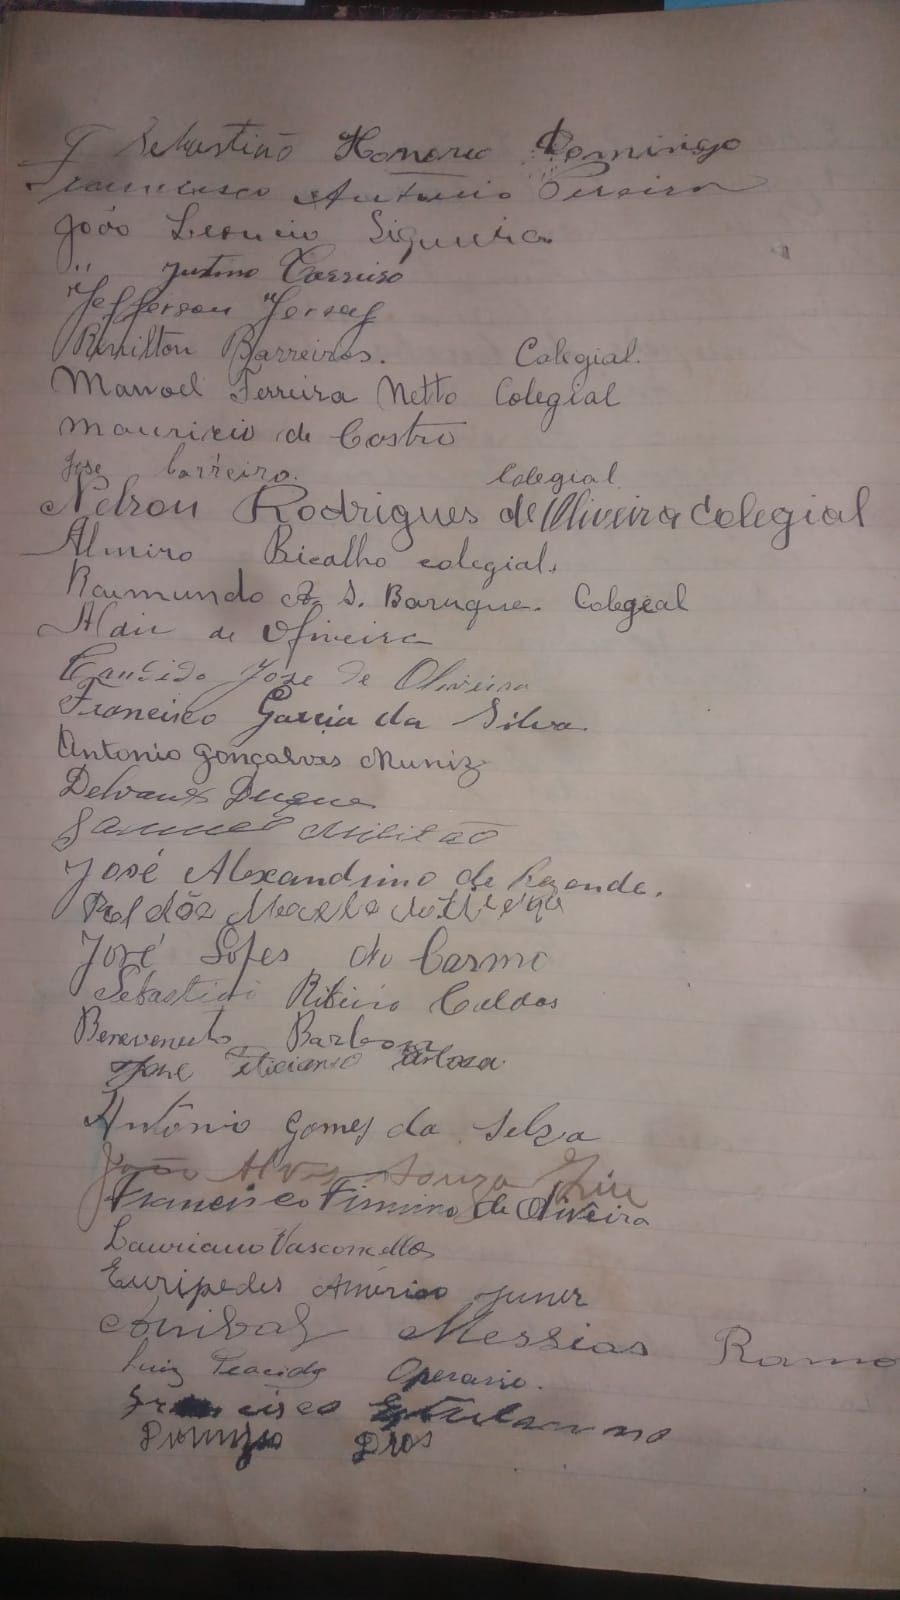 Sebastião Honorio Domingo
Francisco Antonio Pereira
João Leoncio Siqueira
" Justino
Jefferson
Barreiros. Colegial.
Manoel Ferreira Netto Colegial
Mauricio de Castro
José Carreiro. Colegial
Nelson Rodrigues de Oliveira Colegial
Almiro Bicalho colegial.
Raimundo S. Colegeal
Aldir de Oliveira
Candido José de Oliveira
Francisco Garcia da Silva
Antonio Gonçalves Muniz
Duque
Samuel Militão
José Alexandrino de Rezende.
José Lopes do Carmo
Sebastião Ribeiro Caldas
Benevenuto Barbosa
José Feliciano Barbosa
Antônio Gomes da Selva
João Alves Souza
Francisco Firmino de Oliveira
Lauriano Vasconcellos
Euripedes Américo Junior
Anibal Messias Ramo
Luiz Operario.